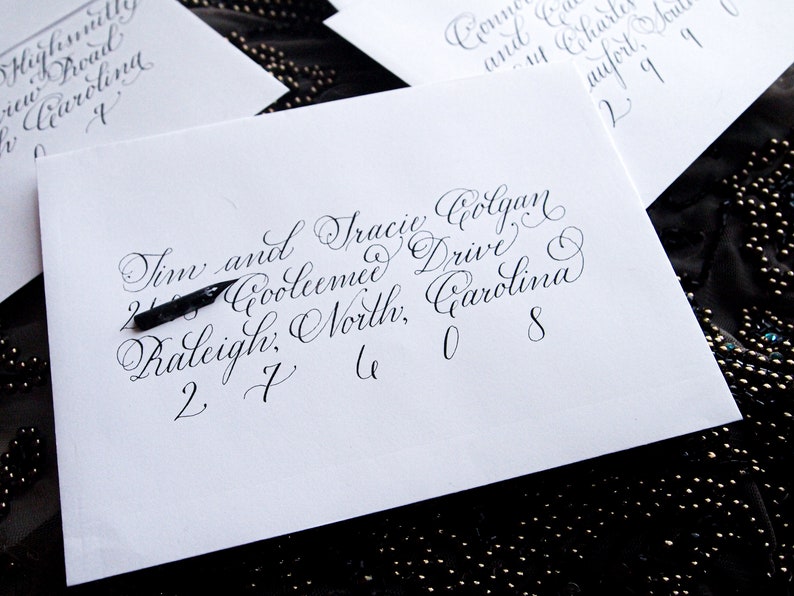 Highsmith
view Road
Carolina
Connor
and
Charles
South
2 9 9 0
Tim and Tracie Colgan
Cooleemee Drive
Raleigh, North, Carolina
2 7 6 0 8